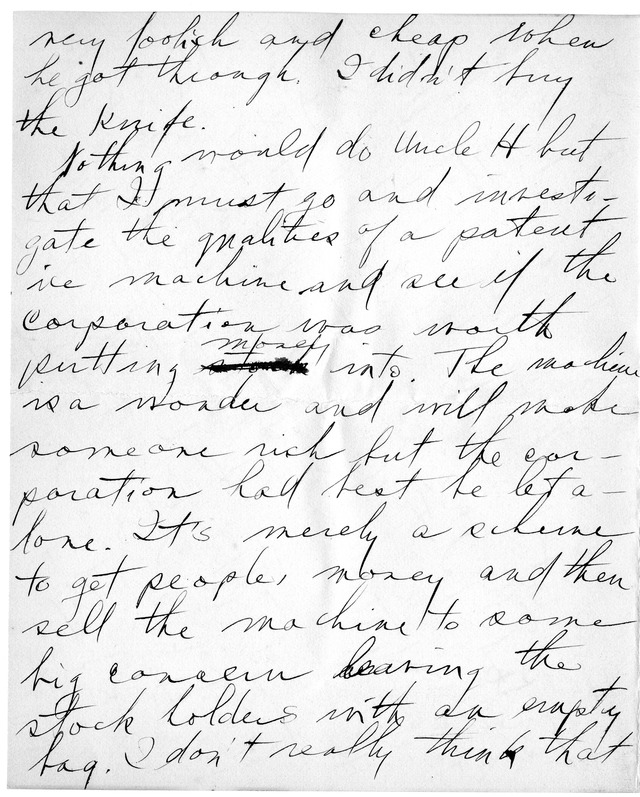 very foolish and cheap when
he got through. I didn't buy
the knife.
Nothing would do Uncle H but
that I must go and investi-
gate the qualities of a patent
ice machine and see if the
corporation was worth
putting money into. The machine
is a wonder and will make
someone rich but the cor-
poration had best be let a-
lone. It's merely a scheme
to get people's money and then
sell the machine to some
big concern leaving the
stock holders with an empty
bag. I don't really think that